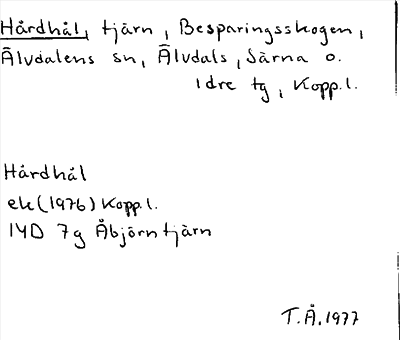 Hårdhål, tjärn, Besparingsskogen,
Älvdalens sn, Älvdals, Särna o.
Idre tg, Kopp. l.
Hårdhål
ek (1976) Kopp. l.
14D 7g Åbjörntjärn
T.Å. 1977